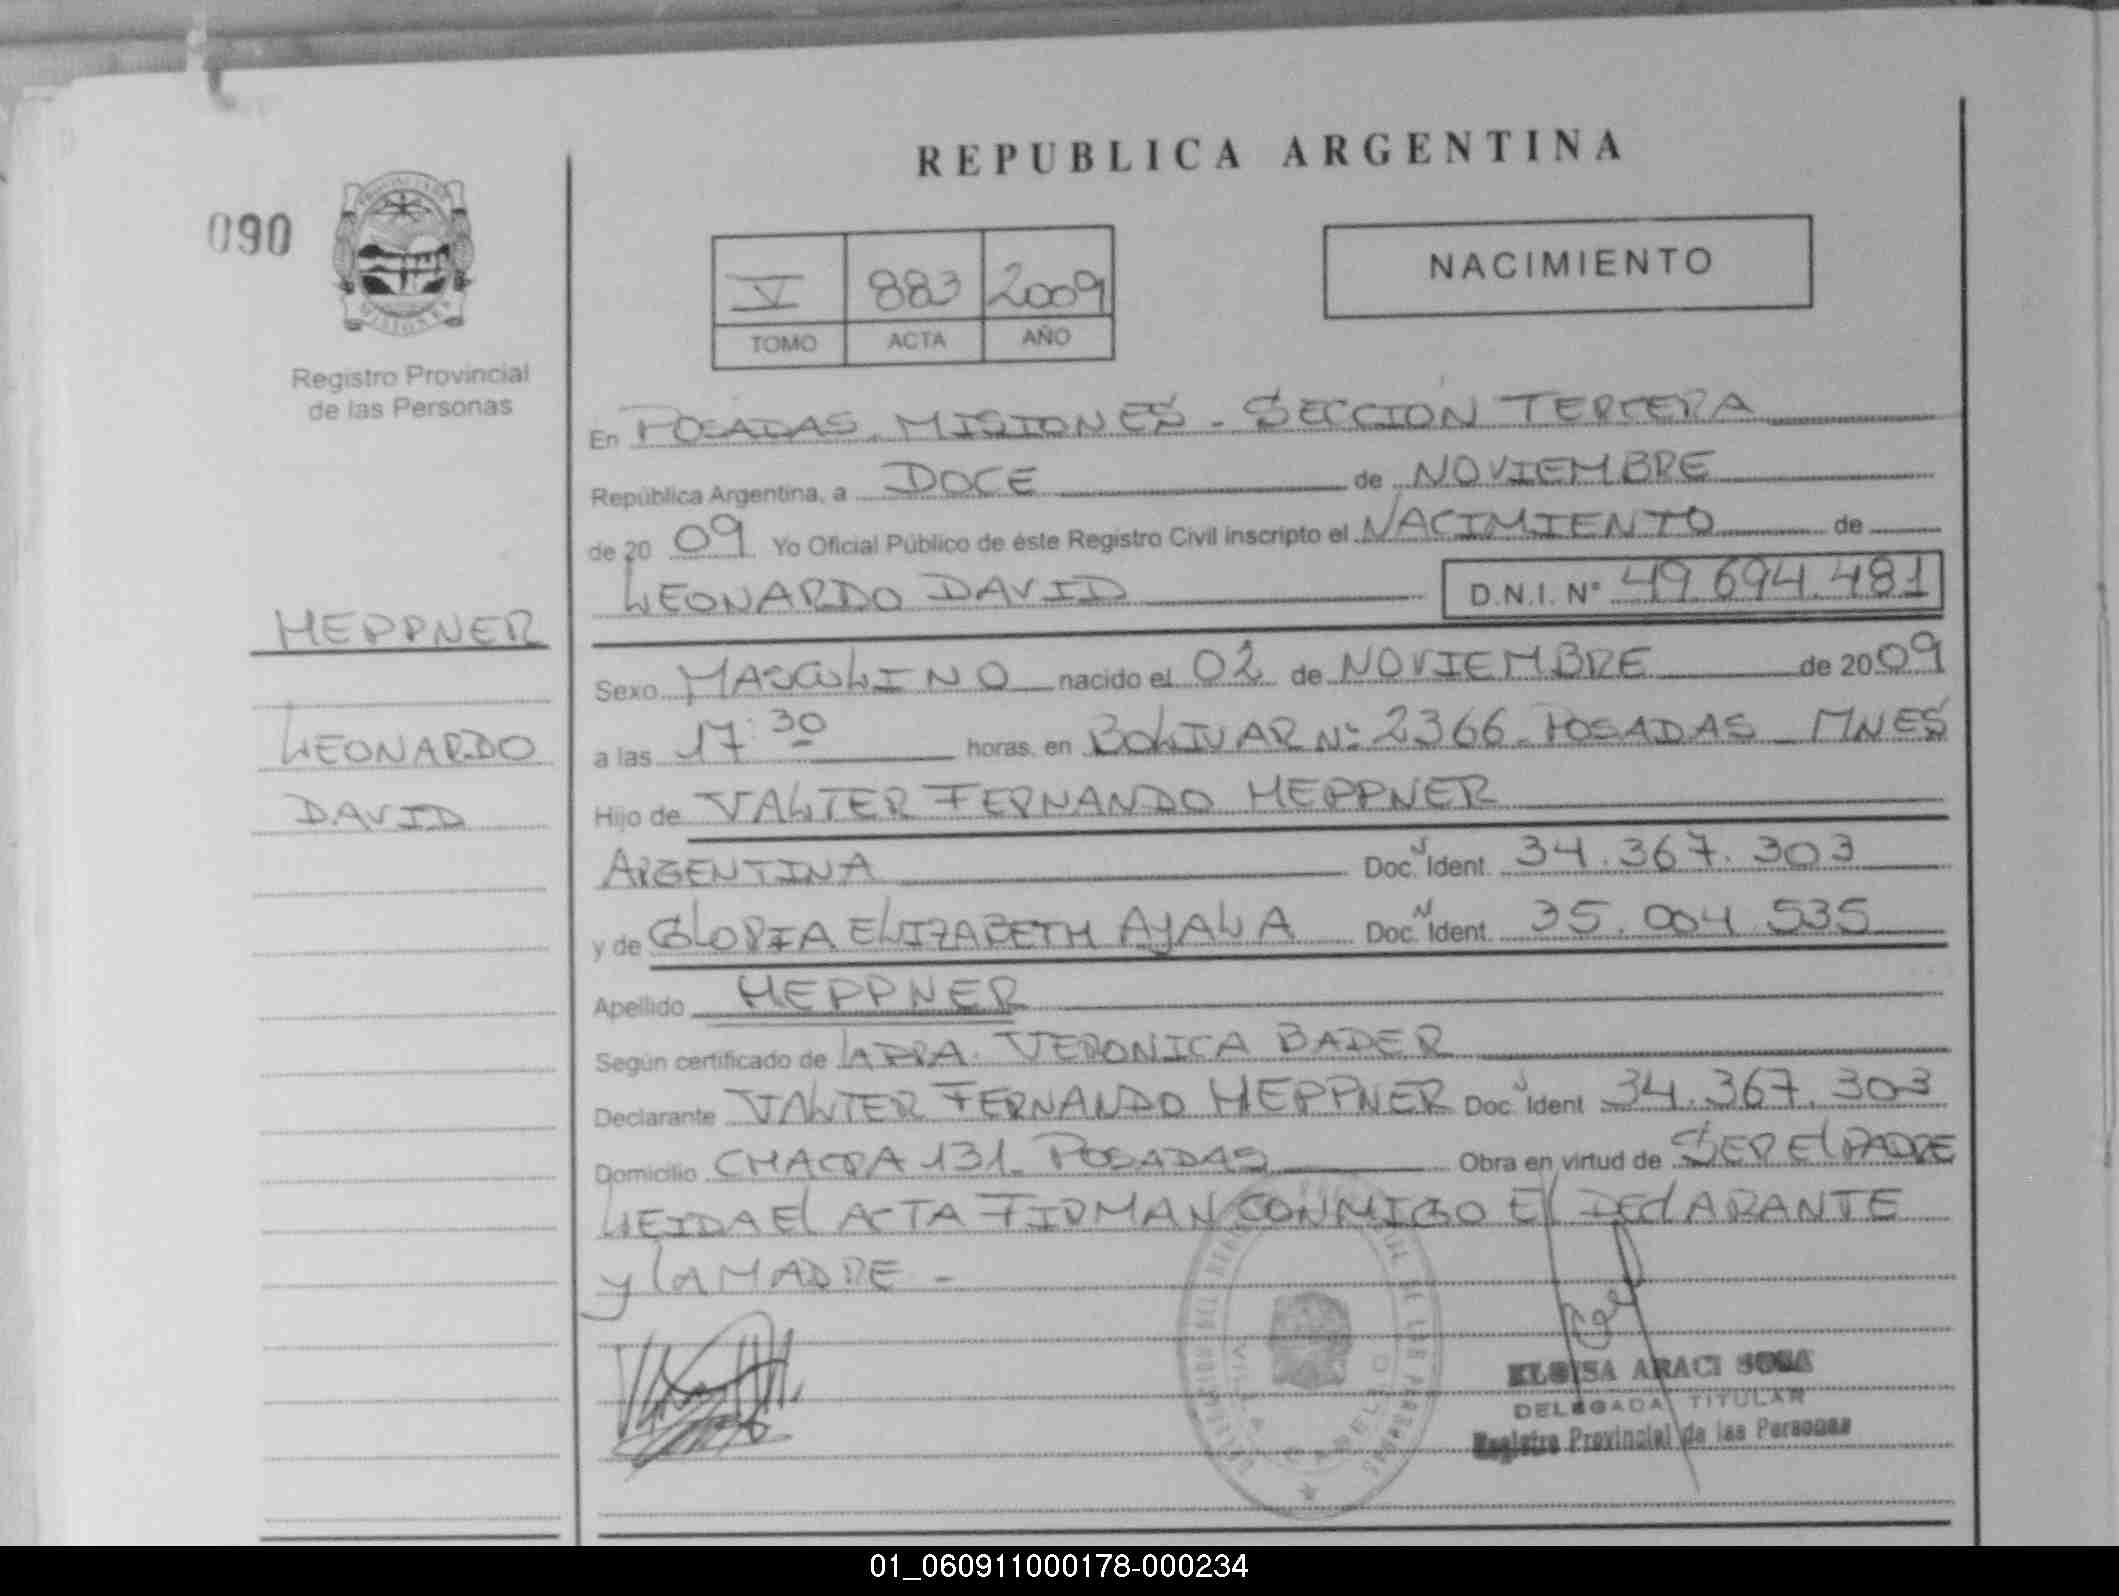 REPUBLICA ARGENTINA
090
NACIMIENTO
V 883 2009
TOMO ACTA AÑO
MISIONES
Registro Provincial
de las Personas
En POSADAS. MISIONES - SECCION TERCERA
República Argentina, a DOCE de NOVIEMBRE
de 2009 Yo Oficial Público de éste Registro Civil inscripto el NACIMIENTO de
LEONARDO DAVID D.N.I. N° 49.694.481
HEPPNER
LEONARDO
DAVID
Sexo MASCULINO nacido el 02 de NOVIEMBRE de 2009
a las 17:30 horas, en BOLIVAR Nº 2366 - POSADAS - MNES
Hijo de VALTER FERNANDO HEPPNER
ARGENTINA Doc. Ident. 34.367.303
y de GLORIA ELIZABETH AYALA Doc. Ident. 35.004.535
Apellido HEPPNER
Según certificado de LA DRA. VERONICA BADER
Declarante VALTER FERNANDO HEPPNER Doc. Ident 34.367.303
Domicilio CHACRA 131 - POSADAS Obra en virtud de SER El PADRE
LEIDA El ACTA FIRMAN CONMIGO El DEClARANTE
y la MADRE -
ELOISA ARACI SOSA
DELEGADA TITULAR
Registro Provincial de las Personas
01_060911000178-000234